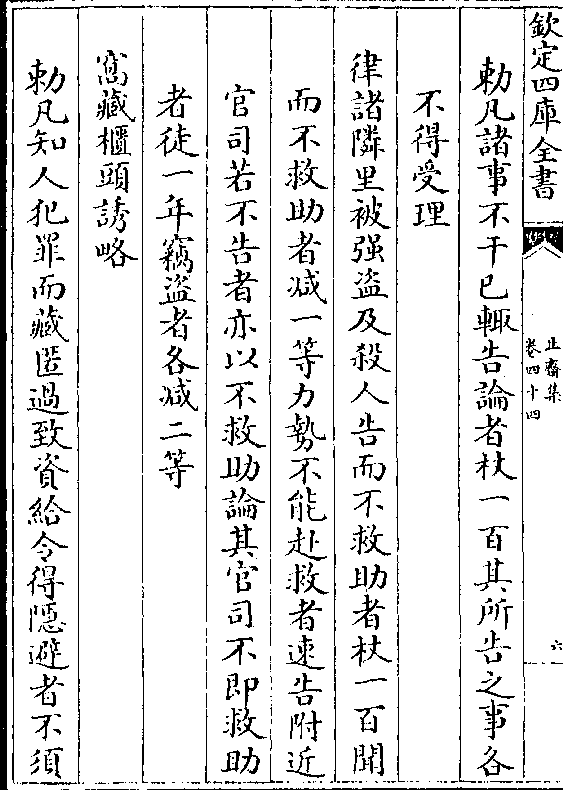 欽定四庫全書
止齋集
卷四十四
六
勅凡諸事不干已輙告論者杖一百其所告之事各
不得受理
律諸隣里被强盗及殺人告而不救助者杖一百聞
而不救助者减一等力勢不能赴救者速告附近
官司若不告者亦以不救助論其官司不即救助
者徒一年竊盗者各减二等
窩藏櫃頭誘略
勅凡知人犯罪而藏匿過致資給令得隠避者不須